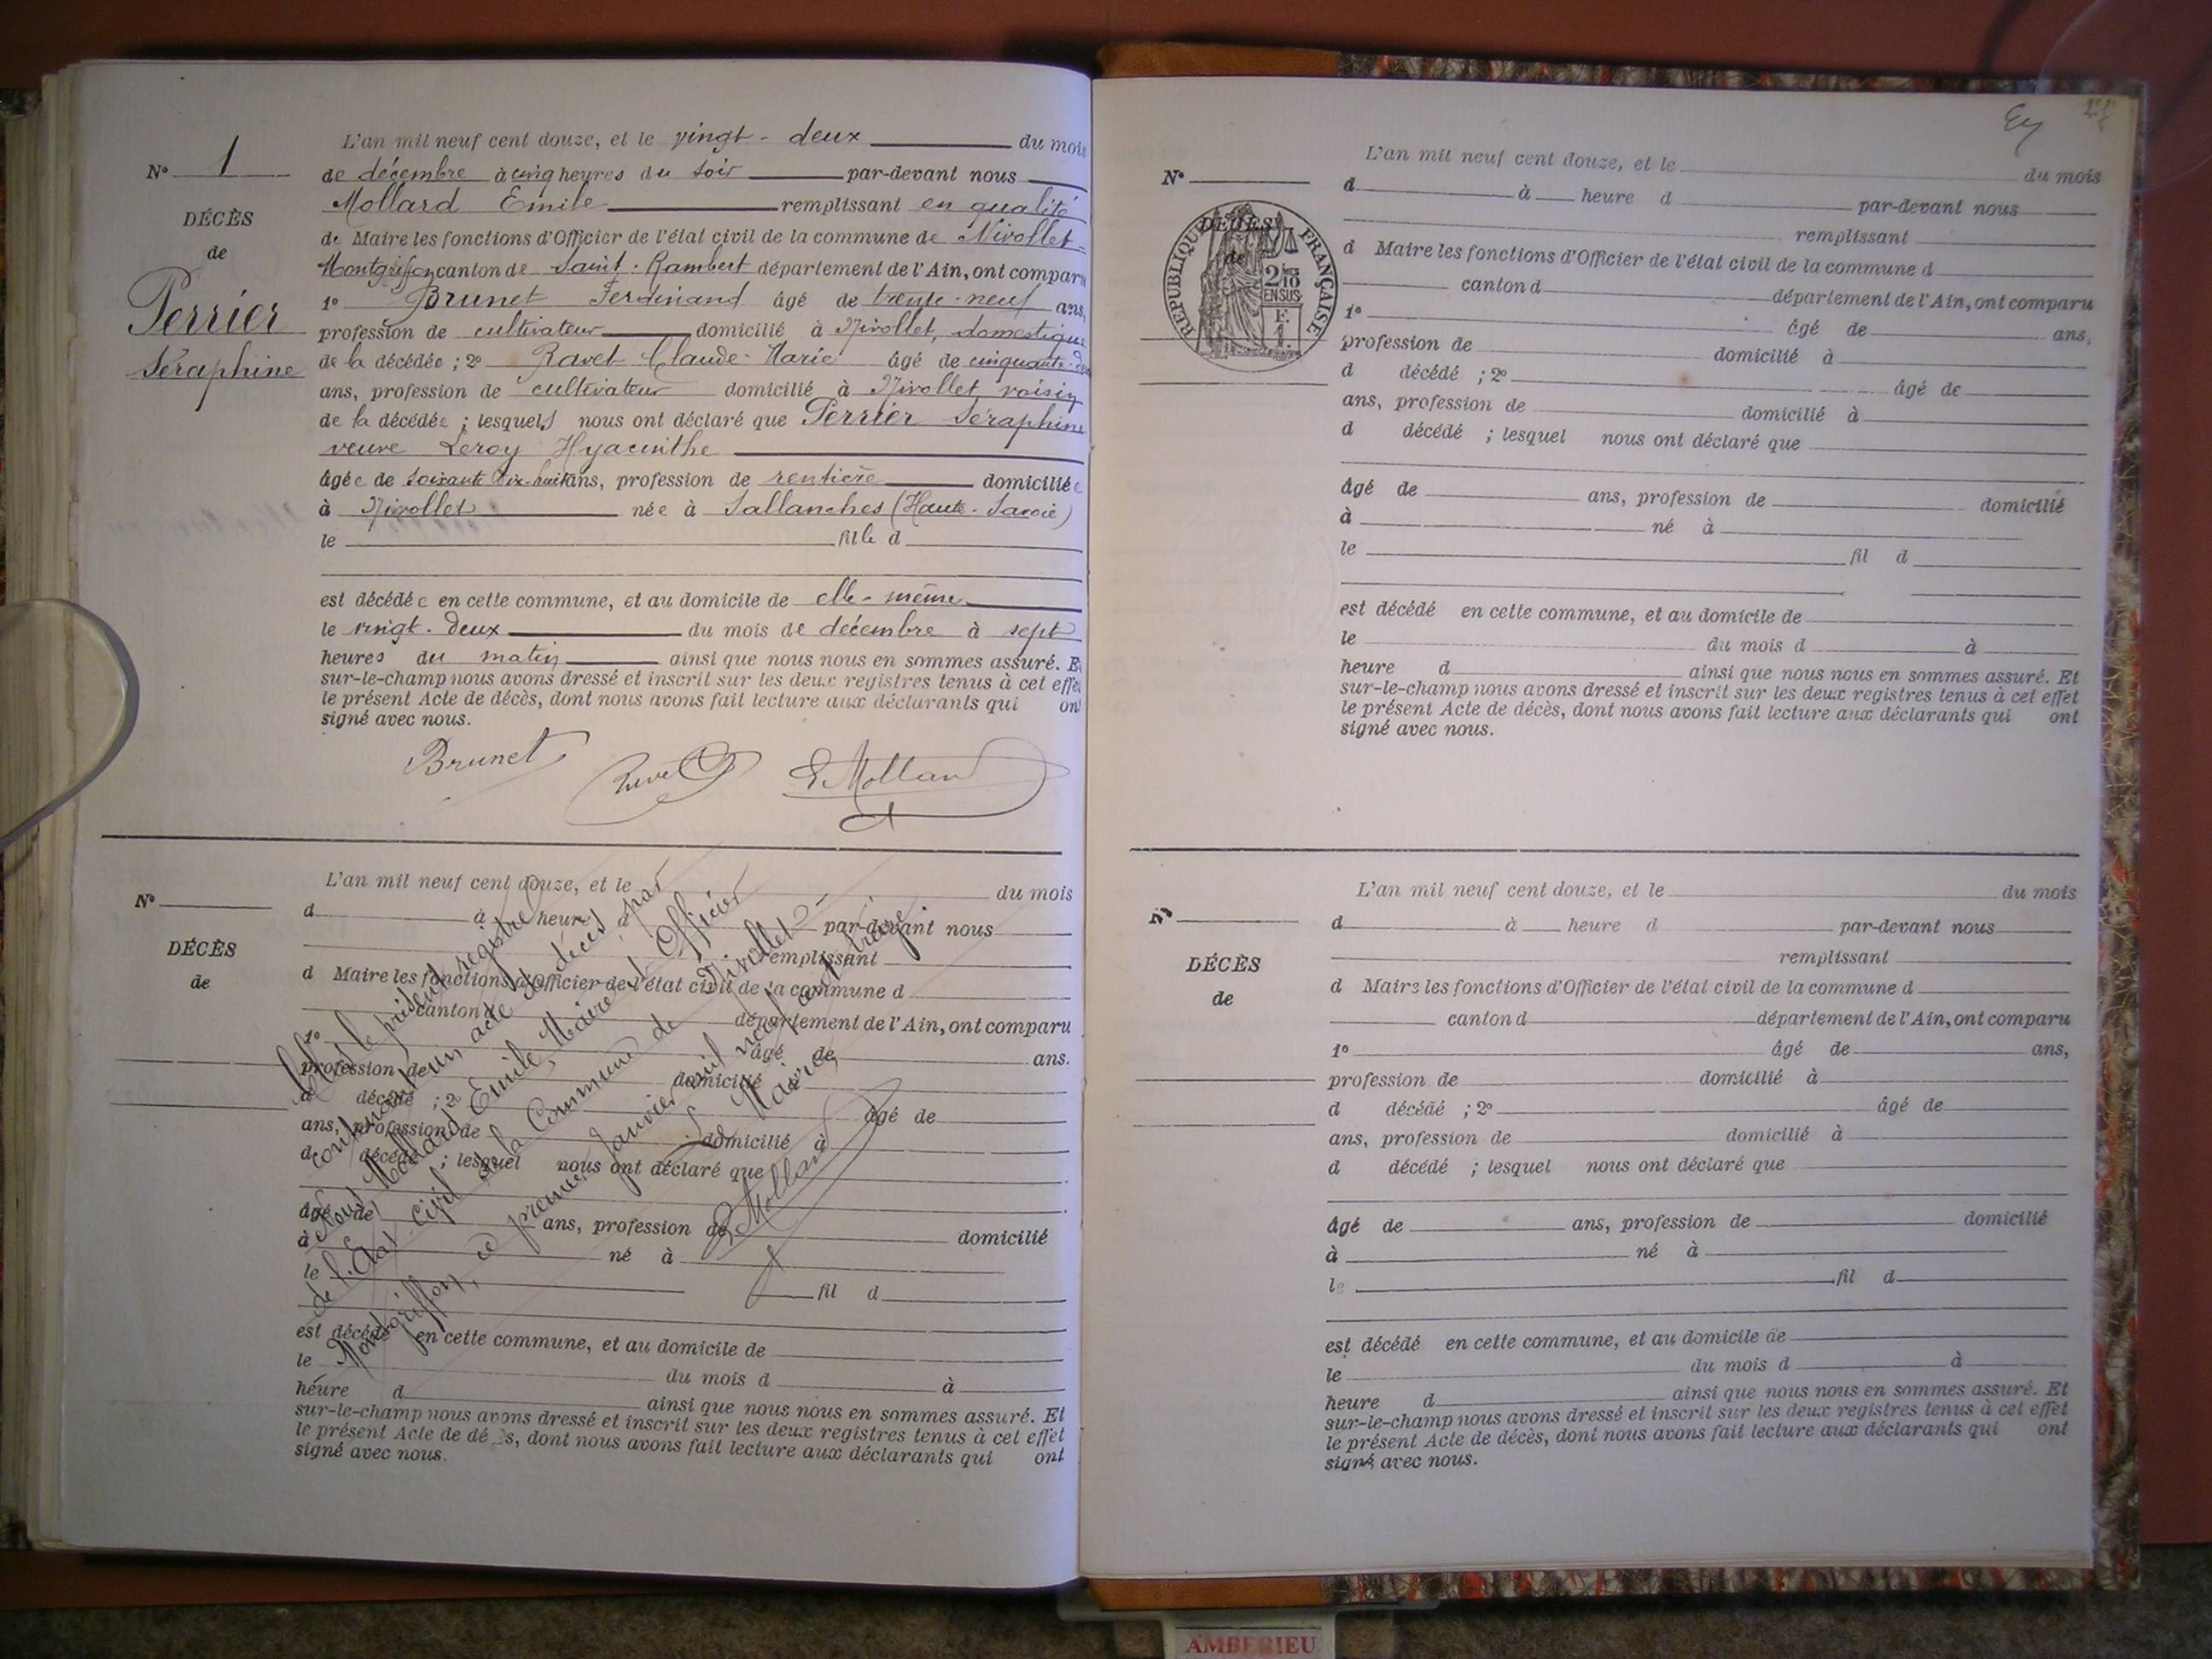 N° 1
DÉCÈS
de
Perrier
Séraphine
L'an mil neuf cent douze, et le vingt-deux du mois
de décembre à cinq heures du soir par-devant nous
Mollard Emile remplissant en qualité
de Maire les fonctions d'Officier de l'état civil de la commune de Nivollet-
Montgriffon canton de Saint-Rambert département de l'Ain, ont comparu
1° Brunet Ferdinand âgé de trente-neuf ans,
profession de cultivateur domicilié à Nivollet, domestique
de la décédée ; 2° Ravet Claude-Marie âgé de cinquante-
ans, profession de cultivateur domicilié à Nivollet, voisin
de la décédée ; lesquels nous ont déclaré que Perrier Séraphine
veuve Leroy Hyacinthe
âgée de soixante dix-huit ans, profession de rentière domiciliée
à Nivollet née à Sallanches (Haute-Savoie)
le fille d
est décédée en cette commune, et au domicile de elle-même
le vingt-deux du mois de décembre à sept
heures du matin ainsi que nous nous en sommes assuré. Et
sur-le-champ nous avons dressé et inscrit sur les deux registres tenus à cet effet
le présent Acte de décès, dont nous avons fait lecture aux déclarants qui ont
signé avec nous.
Brunet Ravet E. Mollard
N°
DÉCÈS
de
L'an mil neuf cent douze, et le du mois
d à heure d par-devant nous
remplissant
d Maire les fonctions d'Officier de l'état civil de la commune d
canton d département de l'Ain, ont comparu
1° âgé de ans.
profession de domicilié à
d décédé ; 2° âgé de
ans, profession de domicilié à
d décédé ; lesquel nous ont déclaré que
âgé de ans, profession de domicilié
à né à
le fil d
est décédé en cette commune, et au domicile de
le du mois d à
heure d ainsi que nous nous en sommes assuré. Et
sur-le-champ nous avons dressé et inscrit sur les deux registres tenus à cet effet
le présent Acte de dé s, dont nous avons fait lecture aux déclarants qui ont
signé avec nous.
le présent registre
contenant un acte de décès par
Nous Mollard Emile, Maire et Officier
de l'Etat-civil de la Commune de Nivollet-
Montgriffon, ce premier Janvier mil neuf cent treize.
Le Maire,
E. Mollard
27
N°
DÉCÈS
de
RÉPUBLIQUE FRANÇAISE
2/10
EN SUS
F.
1.
L'an mil neuf cent douze, et le du mois
d à heure d par-devant nous
remplissant
d Maire les fonctions d'Officier de l'état civil de la commune d
canton d département de l'Ain, ont comparu
1° âgé de ans,
profession de domicilié à
d décédé ; 2° âgé de
ans, profession de domicilié à
d décédé ; lesquel nous ont déclaré que
âgé de ans, profession de domicilié
à né à
le fil d
est décédé en cette commune, et au domicile de
le du mois d à
heure d ainsi que nous nous en sommes assuré. Et
sur-le-champ nous avons dressé et inscrit sur les deux registres tenus à cet effet
le présent Acte de décès, dont nous avons fait lecture aux déclarants qui ont
signé avec nous.
N°
DÉCÈS
de
L'an mil neuf cent douze, et le du mois
d à heure d par-devant nous
remplissant
d Maire les fonctions d'Officier de l'état civil de la commune d
canton d département de l'Ain, ont comparu
1° âgé de ans,
profession de domicilié à
d décédé ; 2° âgé de
ans, profession de domicilié à
d décédé ; lesquel nous ont déclaré que
âgé de ans, profession de domicilié
à né à
le fil d
est décédé en cette commune, et au domicile de
le du mois d à
heure d ainsi que nous nous en sommes assuré. Et
sur-le-champ nous avons dressé et inscrit sur les deux registres tenus à cet effet
le présent Acte de décès, dont nous avons fait lecture aux déclarants qui ont
signé avec nous.
AMBERIEU